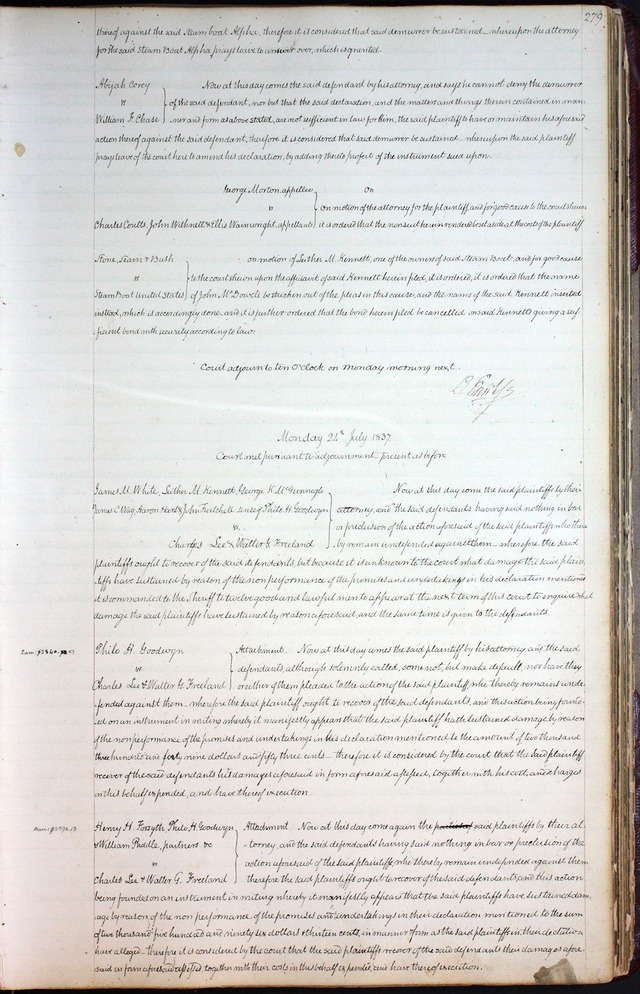 279
thereof against the said Steam boat Alpha, therefore it is considered that said demurrer be sustained – whereupon the attorney
for the said Steam Boat Alpha prays leave to answer over, which is granted.
Abijah Corey
vs
William F. Chase
Now at this day comes the said defendant by his attorney, and says he cannot deny the demurrer
of the said defendant, nor but that the said declaration, and the matters and things therein contained in man
ner and form as above stated, are not sufficient in law for him, the said plaintiff to have or maintain his aforesaid
action thereof against the said defendant, therefore it is considered that said demurrer be sustained – whereupon the said plaintiff
prays leave of the court here to amend his declaration, by adding thereto profert of the instrument sued upon.
George Morton, appellee
vs
Charles Coults, John Withnell & Ellis Wainwright, appellants
On
on motion of the attorney for the plaintiff, and for good cause to the court shewn
it is ordered that the nonsuit herein rendered be set aside at the costs of the plaintiff
Stone, Steam & Bush
vs
Steam Boat United States
on motion of Luther M. Kennett, one of the owners of said Steam Boat, and for good cause
to the court shewn upon the affidavit of said Kennett herein filed, it is ordered, it is ordered that the name
of John McDowell be stricken out of the pleas in this cause, and the name of the said Kennett inserted
instead, which is accordingly done – and it is further ordered that the bond herein filed be cancelled on said Kennett's giving a suf
ficient bond with security according to law.
Court adjourn to ten O'clock on monday morning next.
Monday 24th July 1837.
Court met pursuant to adjournment – present as before
James M. White, Luther M. Kennett, George K. McGunnegle
James C. Way, Aaron
to use of Philo H. Goodwyn
vs.
Charles Lee & Walter G. Freeland
Now at this day come the said plaintiffs by their
attorney, and the said defendants having said nothing in bar
or preclusion of the action aforesaid of the said plaintiffs, whe thereby
remain undefended against them – wherefore the said
plaintiffs ought to recover of the said defendants, but because it is unknown to the court what damage the said plain
tiffs have sustained by reason of the non performance of the promises and undertakings in his declaration mentioned
it is commanded to the Sheriff to twelve good and lawful men to appear at the next term of this court to enquire what
damage the said plaintiffs have sustained by reason aforesaid, and the same time is given to the defendants.
Philo H. Goodwyn
vs
Charles Lee & Walter G. Freeland
Attachment. Now at this day comes the said plaintiff by his attorney and the said
defendants, although solemnly called, come not, but make default, nor have they
or either of them pleaded to the action of the said plaintiff, whe thereby remains unde-
fended against them – wherefore the said plaintiff ought to recover of the said defendants, and this action being found-
ed on an instrument in writing whereby it manifestly appears that the said plaintiff hath sustained damage by reason
of the nonperformance of the promises and undertakings in his declaration mentioned to the amount of two thousand
three hundred and forty nine dollars and fifty three cents – therefore it is considered by the court that the said plaintiff
recover of the said defendants his damages aforesaid in form aforesaid assessed, together with his cost, and charges
in this behalf expended, and have thereof execution.
Henry H. Forsyth, Philo H. Goodwyn
& William Riddle, partners &c
vs
Charles Lee & Walter G. Freeland
Attachment. Now at this day come again the said plaintiffs by their at-
torney, and the said defendants having said nothing in bar or preclusion of the
action aforesaid of the said plaintiffs, whe thereby remain undefended against them
therefore the said plaintiffs ought to recover of the said defendants and this action
being founded on an instrument in writing whereby it manifestly appears that the said plaintiffs have sustained dam
age by reason of the non performance of the promises and undertakings in their declaration mentioned to the sum
of two thousand five hundred and ninety six dollars & thirteen cents, in manner & form as the said plaintiffs in their declaration
have alleged – therefore it is considered by the court that the said plaintiffs recover of the said defendants their damages afore
said in form aforesaid assessed, together with their costs in this behalf expended, and have thereof execution.